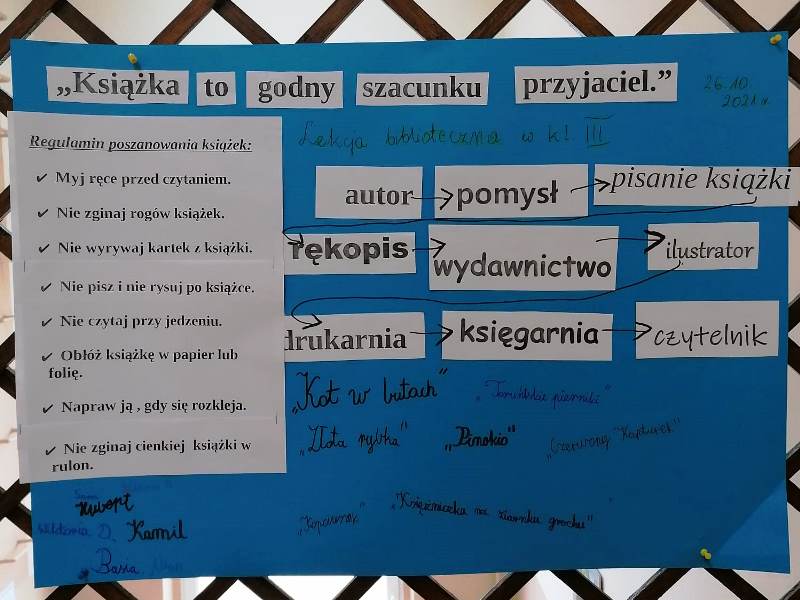 „Książka to godny szacunku przyjaciel.”
26.10.
2021 r.
Lekcja biblioteczna w kl. III
Regulamin poszanowania książek:
✔ Myj ręce przed czytaniem.
✔ Nie zginaj rogów książek.
✔ Nie wyrywaj kartek z książki.
✔ Nie pisz i nie rysuj po książce.
✔ Nie czytaj przy jedzeniu.
✔ Obłóż książkę w papier lub
folię.
✔ Napraw ją , gdy się rozkleja.
✔ Nie zginaj cienkiej książki w
rulon.
autor → pomysł → pisanie książki
rękopis → wydawnictwo → ilustrator
drukarnia → księgarnia → czytelnik
„Kot w butach” „Toruńskie pierniki”
„Złota rybka” „Pinokio” „Czerwony Kapturek”
„Kopciuszek” „Księżniczka na ziarnku grochu”
Hubert
Wiktoria D. Kamil
Basia